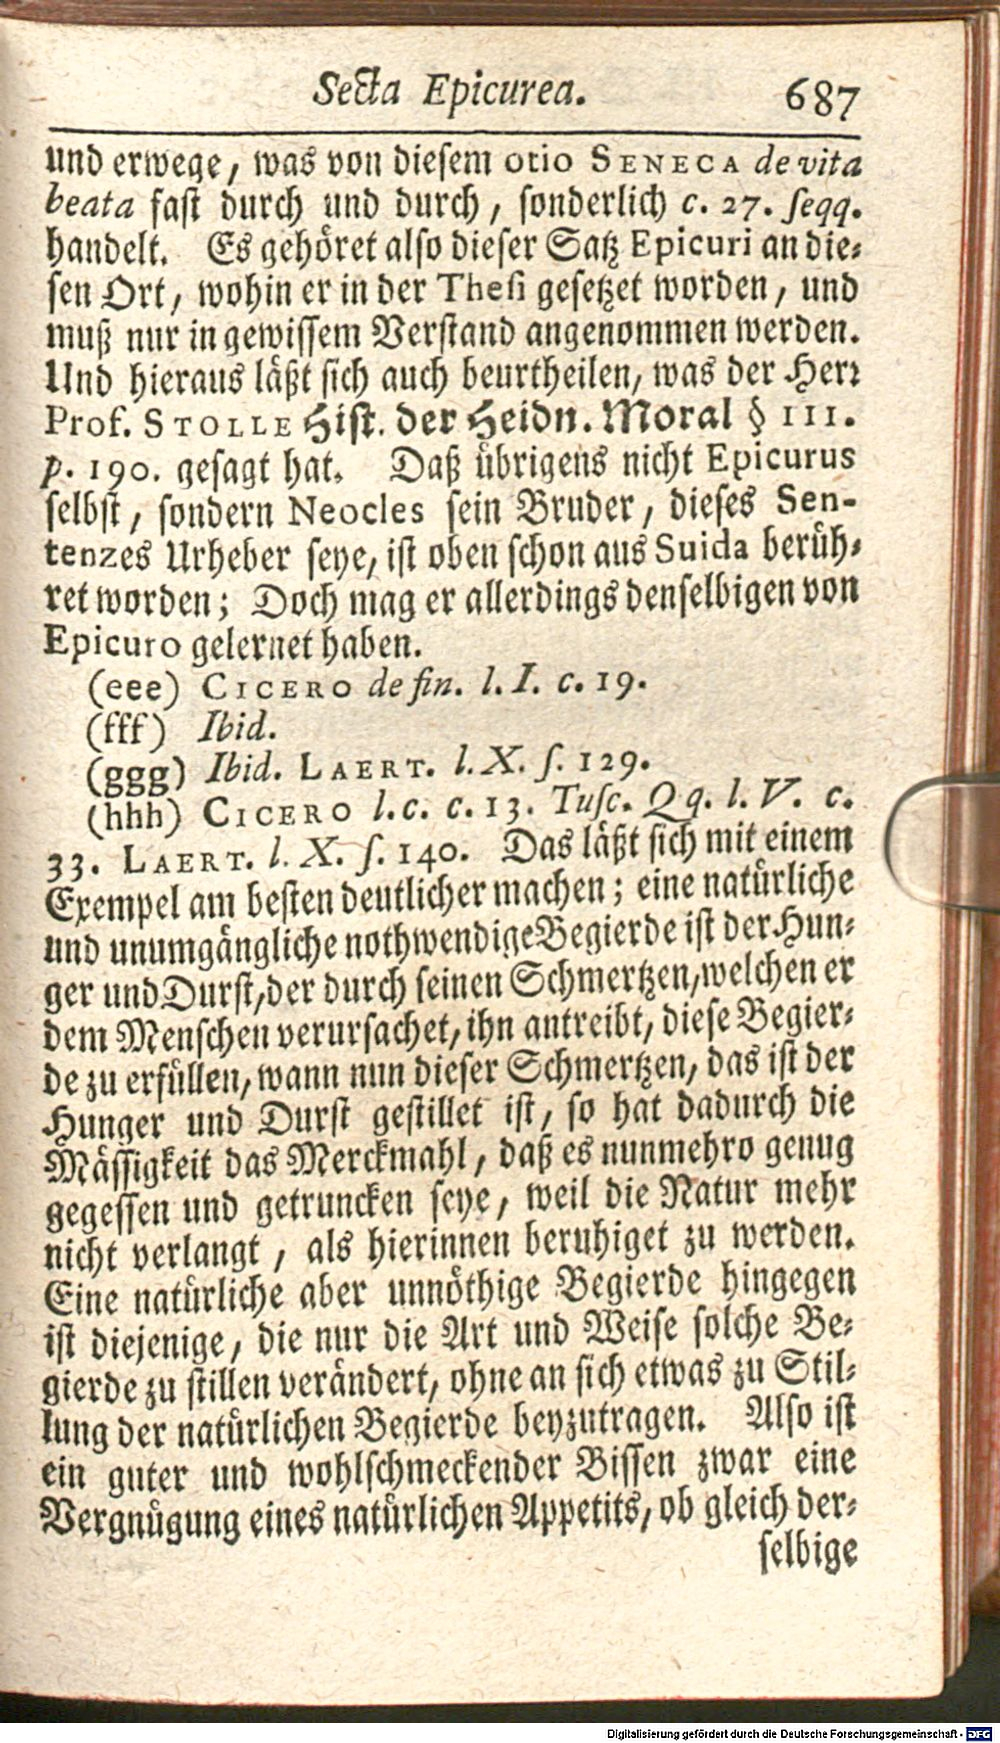 Secta Epicurea. 687
und erwege, was von diesem otio SENECA de vita
beata fast durch und durch, sonderlich c. 27. seqq.
handelt. Es gehöret also dieser Satz Epicuri an die-
sen Ort, wohin er in der Thesi gesetzet worden, und
muß nur in gewissem Verstand angenommen werden.
Und hieraus läßt sich auch beurtheilen, was der Herr
Prof. STOLLE Hist. der Heidn. Moral § III.
p. 190. gesagt hat. Daß übrigens nicht Epicurus
selbst, sondern Neocles sein Bruder, dieses Sen-
tenzes Urheber seye, ist oben schon aus Suida berüh-
ret worden; Doch mag er allerdings denselbigen von
Epicuro gelernet haben.
(eee) CICERO de fin. l. I. c. 19.
(fff) Ibid.
(ggg) Ibid. LAERT. l. X. s. 129.
(hhh) CICERO l. c. c. 13. Tusc. Qq. l. V. c.
33. LAERT. l. X. s. 140. Das läßt sich mit einem
Exempel am besten deutlicher machen; eine natürliche
und unumgängliche nothwendige Begierde ist der Hun-
ger und Durst, der durch seinen Schmertzen, welchen er
dem Menschen verursachet, ihn antreibt, diese Begier-
de zu erfüllen, wann nun dieser Schmertzen, das ist der
Hunger und Durst gestillet ist, so hat dadurch die
Mässigkeit das Merckmahl, daß es nunmehro genug
gegessen und getruncken seye, weil die Natur mehr
nicht verlangt, als hierinnen beruhiget zu werden.
Eine natürliche aber unnöthige Begierde hingegen
ist diejenige, die nur die Art und Weise solche Be-
gierde zu stillen verändert, ohne an sich etwas zu Stil-
lung der natürlichen Begierde beyzutragen. Also ist
ein guter und wohlschmeckender Bissen zwar eine
Vergnügung eines natürlichen Appetits, ob gleich der-
selbige
Digitalisierung gefördert durch die Deutsche Forschungsgemeinschaft - DFG